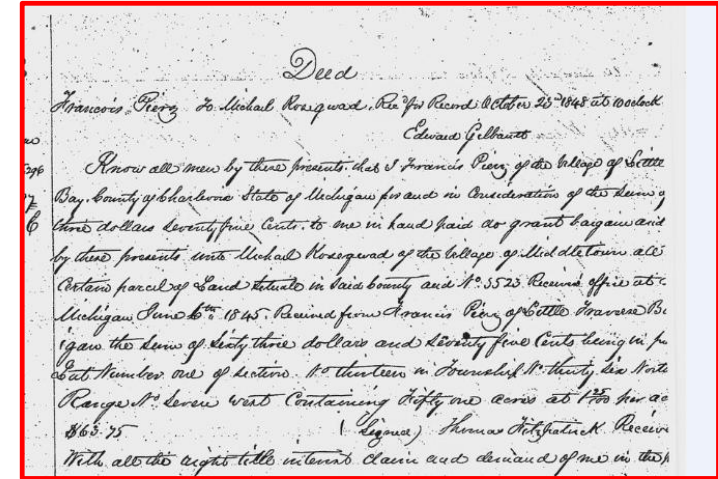 Deed
Francois Pierz To Michael Kosequad. Rec'd for Record October 25th 1848 at 10 oclock
Edward Gilbault
Know all men by these presents. that I Francis Pierz of the Village of Little
Bay. County of Charlevoix State of Michigan for and in Consideration of the Sum of
three dollars Seventy five Cents. to me in hand paid do grant bargain and
by these presents unto Michael Kosequad of the Village of Middletown all
Certain parcel of Land Situate in Said County and No. 5523 Receivers office at
Michigan June 6th 1845. Received from Francis Pierz of Little Traverse B
igan the Sum of Sixty three dollars and Seventy five Cents being in
Lot Number one of Section. No thirteen in Township No thirty Six North
Range No. Seven West Containing Fifty one acres at 1 25/100 per ac
$63.75 (Signed) Thomas Fitzpatrick Receive
With all the right title interest claim and demand of me in the